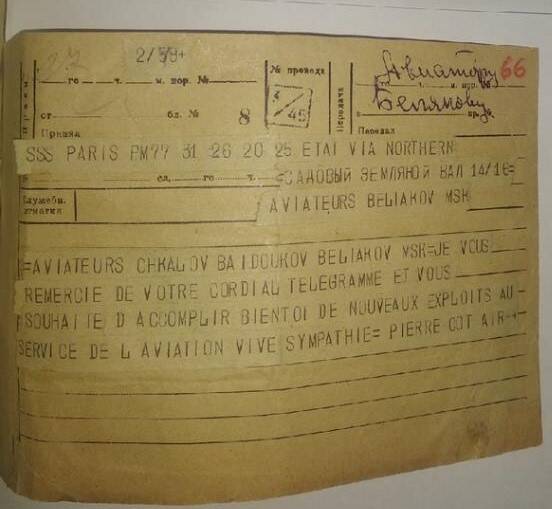 2/58+
го ч. м. пор. №
№ провода
Авиатору 66
от бл. № 8
45
Белякову
Передача
Принял
Передал
SSS PARIS PM77 31 26 20 25 ETAT VIA NORTHERN
сл. го ч. =САДОВЫЙ ЗЕМЛЯНОЙ ВАЛ 14/16=
Служебн. AVIATEURS BELIAKOV MSK
отметки
=AVIATEURS CHKALOV BAIDOUKOV BELIAKOV MSK=JE VOUS
REMERCIE DE VOTRE CORDIAL TELEGRAMME ET VOUS
SOUHAITE D ACCOMPLIR BIENTOT DE NOUVEAUX EXPLOITS AU
SERVICE DE L AVIATION VIVE SYMPATHIE= PIERRE COT AIR-+